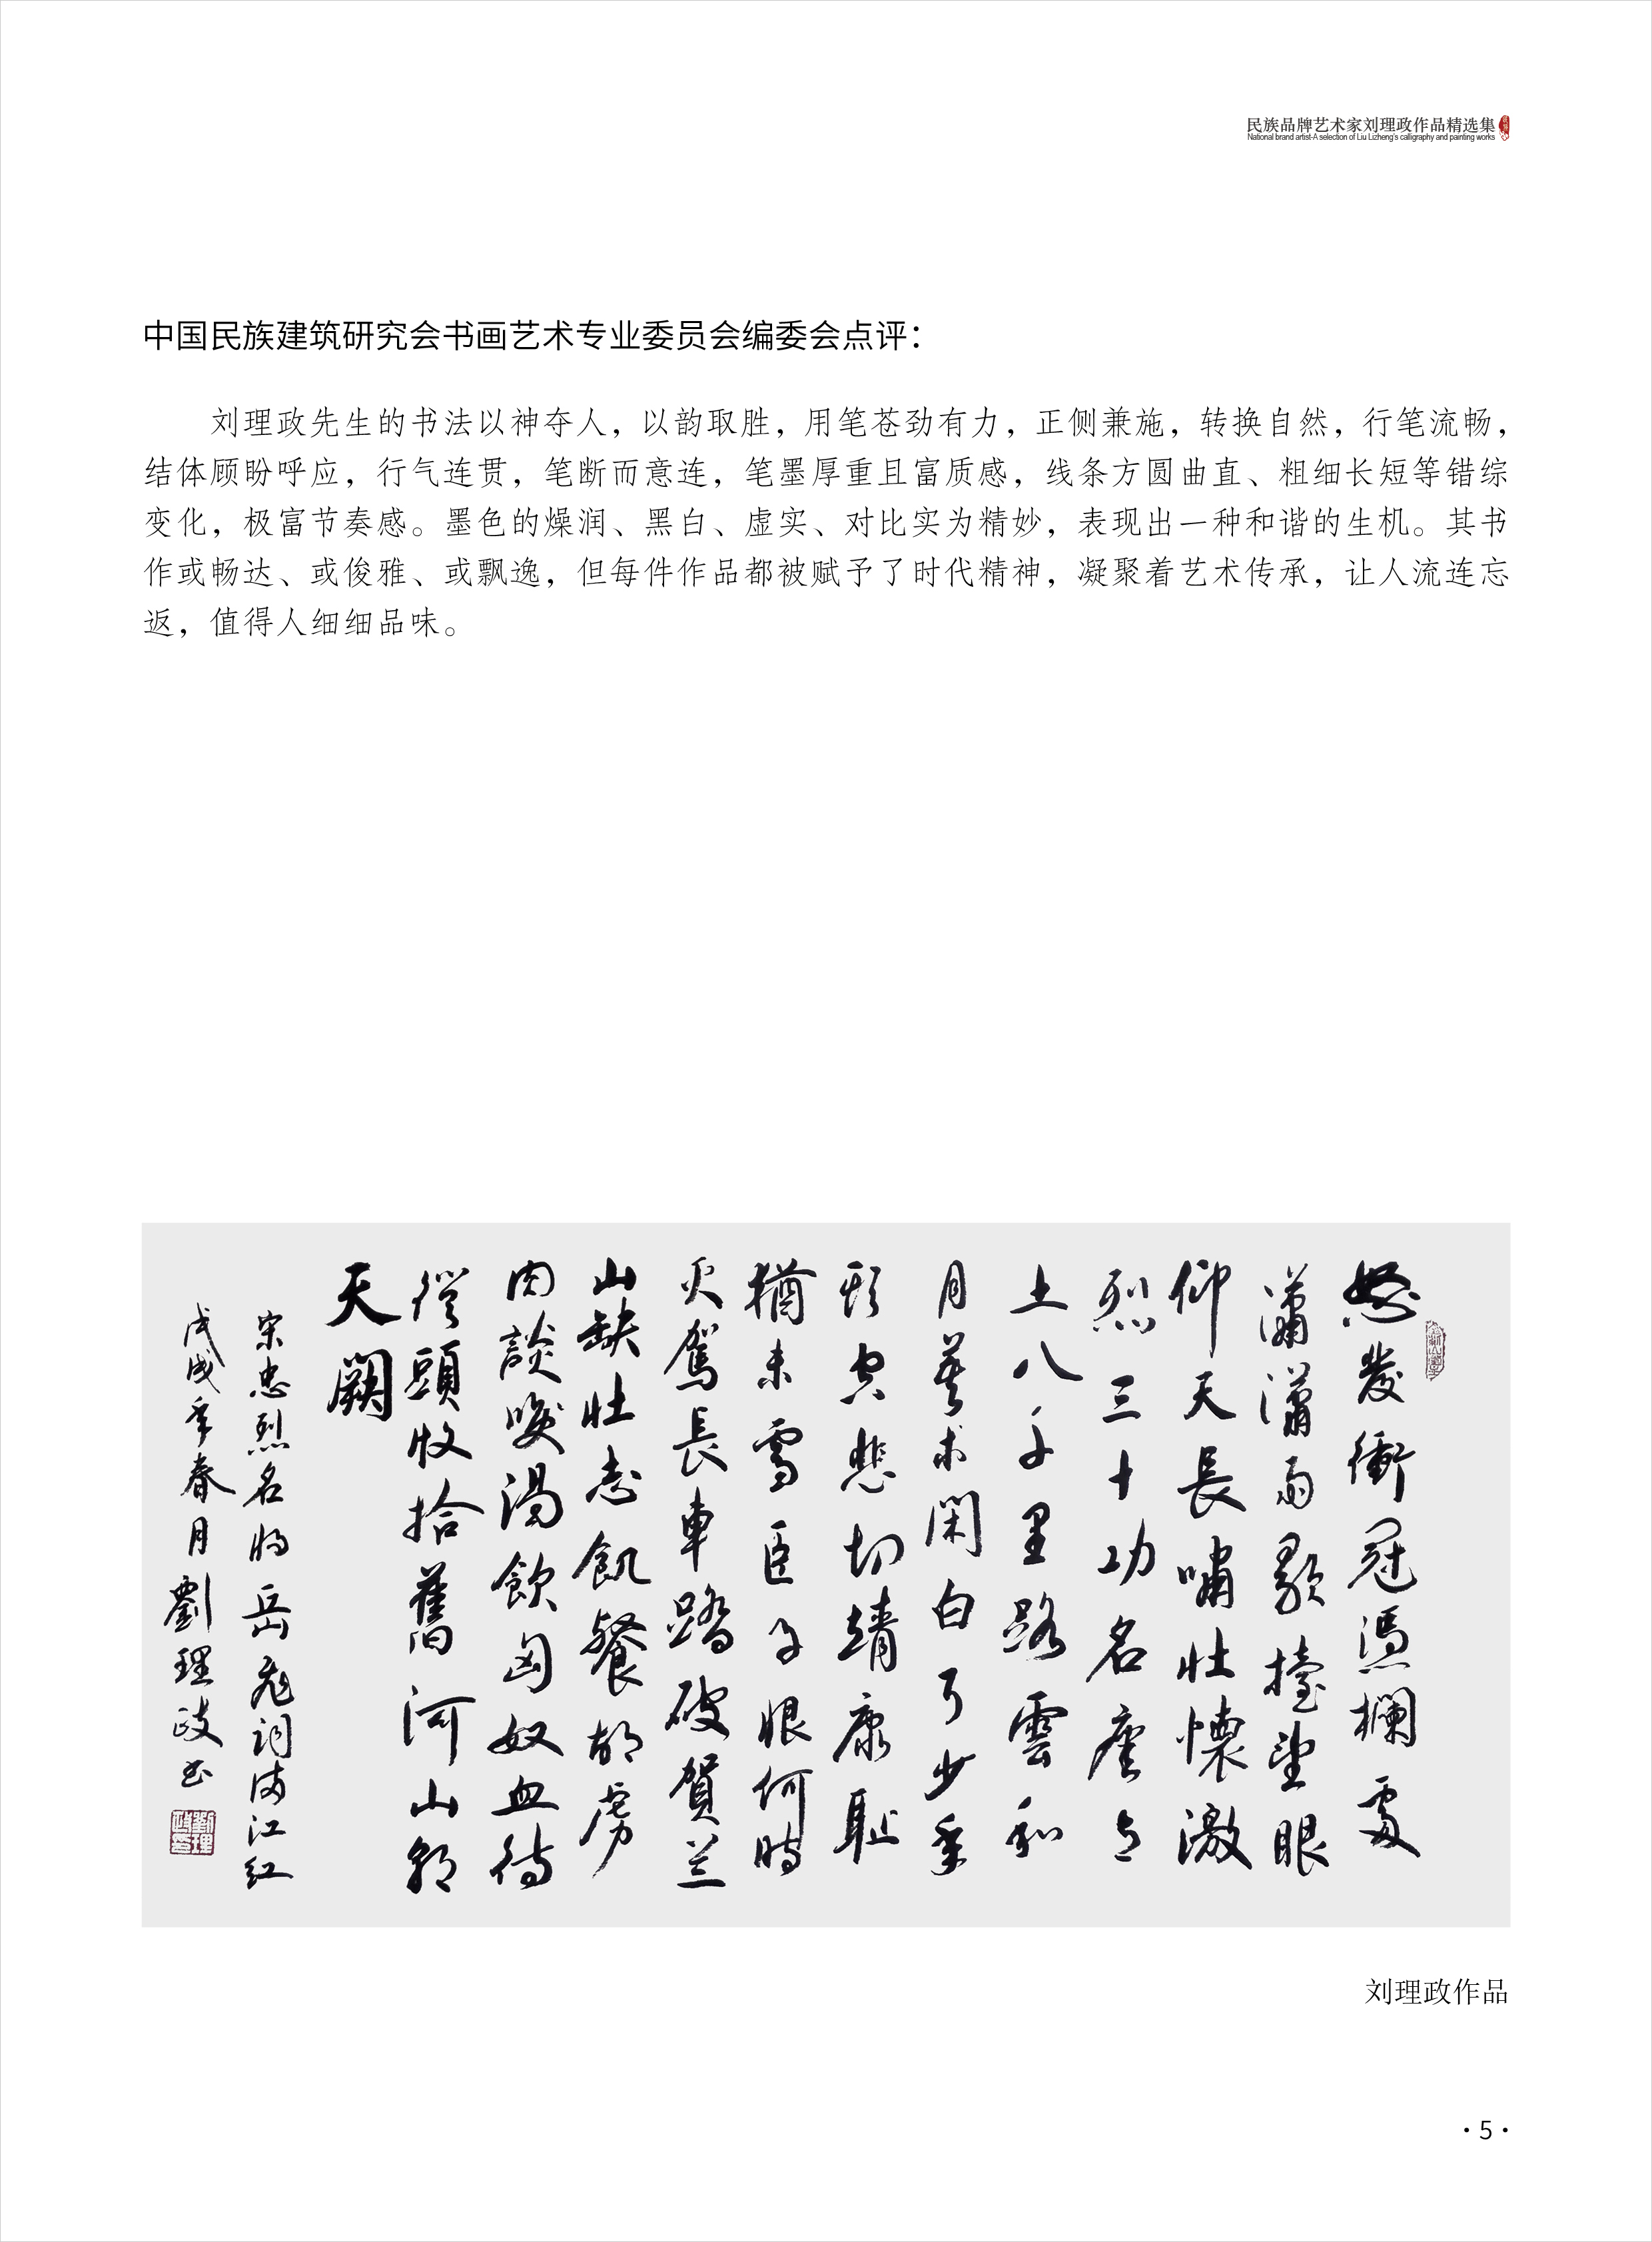 民族品牌艺术家刘理政作品精选集
National brand artist-A selection of Liu Lizheng's calligraphy and painting works
中国民族建筑研究会书画艺术专业委员会编委会点评：
刘理政先生的书法以神夺人，以韵取胜，用笔苍劲有力，正侧兼施，转换自然，行笔流畅，
结体顾盼呼应，行气连贯，笔断而意连，笔墨厚重且富质感，线条方圆曲直、粗细长短等错综
变化，极富节奏感。墨色的燥润、黑白、虚实、对比实为精妙，表现出一种和谐的生机。其书
作或畅达、或俊雅、或飘逸，但每件作品都被赋予了时代精神，凝聚着艺术传承，让人流连忘
返，值得人细细品味。
怒發衝冠憑欄處
瀟瀟雨歇擡望眼
仰天長嘯壯懷激
烈三十功名塵与
土八千里路雲和
月莫等閑白了少年
頭空悲切靖康耻
猶未雪臣子恨何時
灭駕長車踏破賀兰
山缺壯志飢餐胡虜
肉談笑渴飲匈奴血待
從頭收拾舊河山朝
天闕
宋忠烈名将岳飛詞滿江红
戊戌年春月劉理政书
刘理政作品
·5·